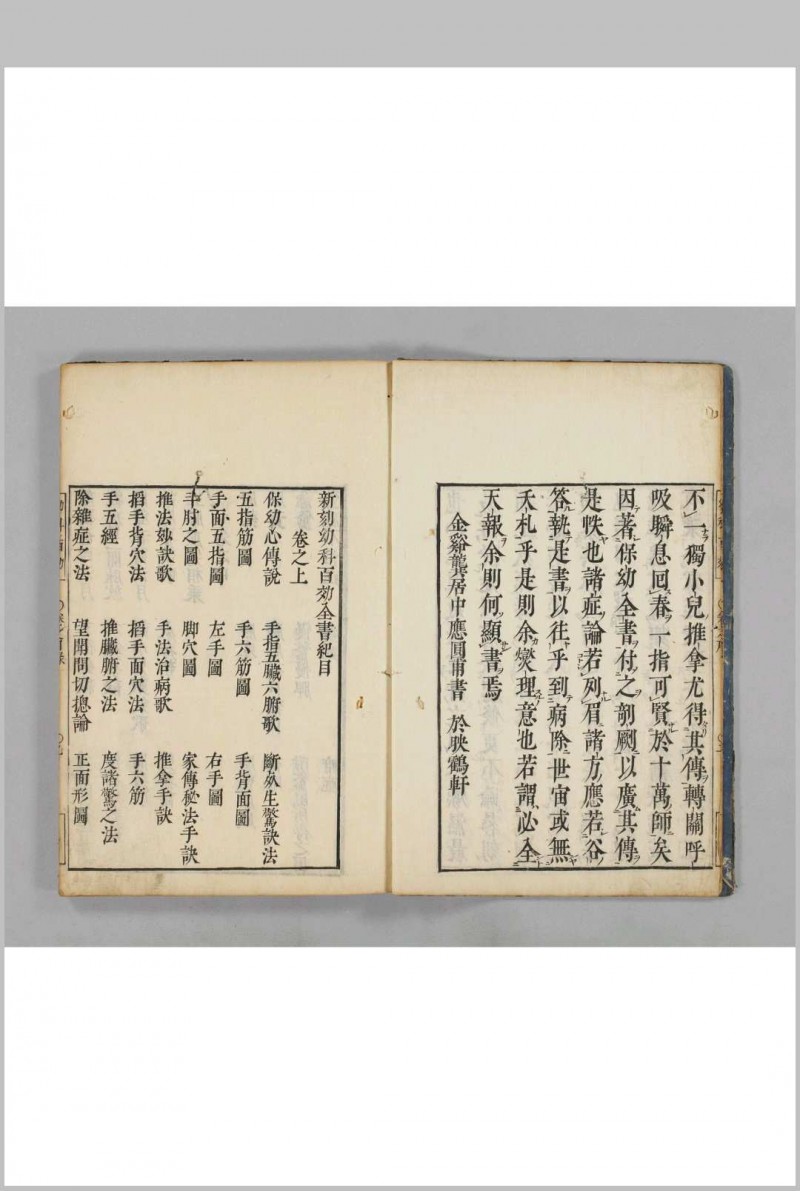 不一獨小兒推拿尤得其傳轉關呼
吸瞬息回春一指可賢於十萬師矣
因著保幼全書付之剞劂以廣其傳
是帙也諸症論若列眉諸方應若谷
答執是書以往乎到病除世宙或無
夭札乎是則余燮理意也若謂必全
天報余則何顯書焉
金谿龔居中應圓甫書 於映鶴軒
新刻幼科百効全書紀目
卷之上
保幼心傳說 手指五臟六腑歌 斷死生驚訣法
五指筋圖 手六筋圖 手背面圖
手面五指圖 左手圖 右手圖
手肘之圖 脚穴圖 家傳秘法手訣
推法妙訣歌 手法治病歌 推拿手訣
搯手背穴法 搯手面穴法 手六筋
手五經 推臟腑之法 度諸驚之法
除雜症之法 望聞問切摠論 正面形圖